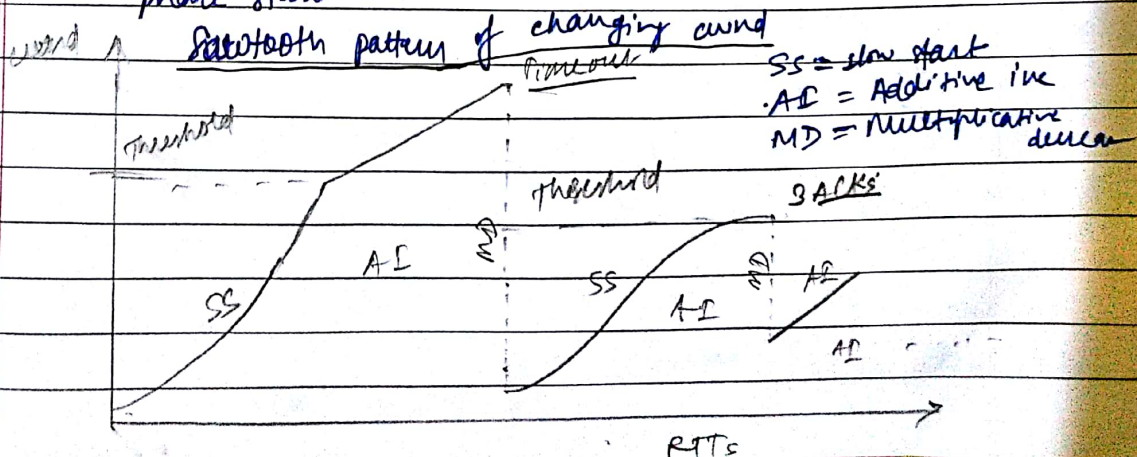 Sawtooth pattern of changing cwnd
cwnd
Timeout
SS = slow start
AI = Additive inc
MD = Multiplicative
Threshold
Threshold
3 ACKs
MD
MD
SS
AI
SS
AI
AI
AI
RTTs